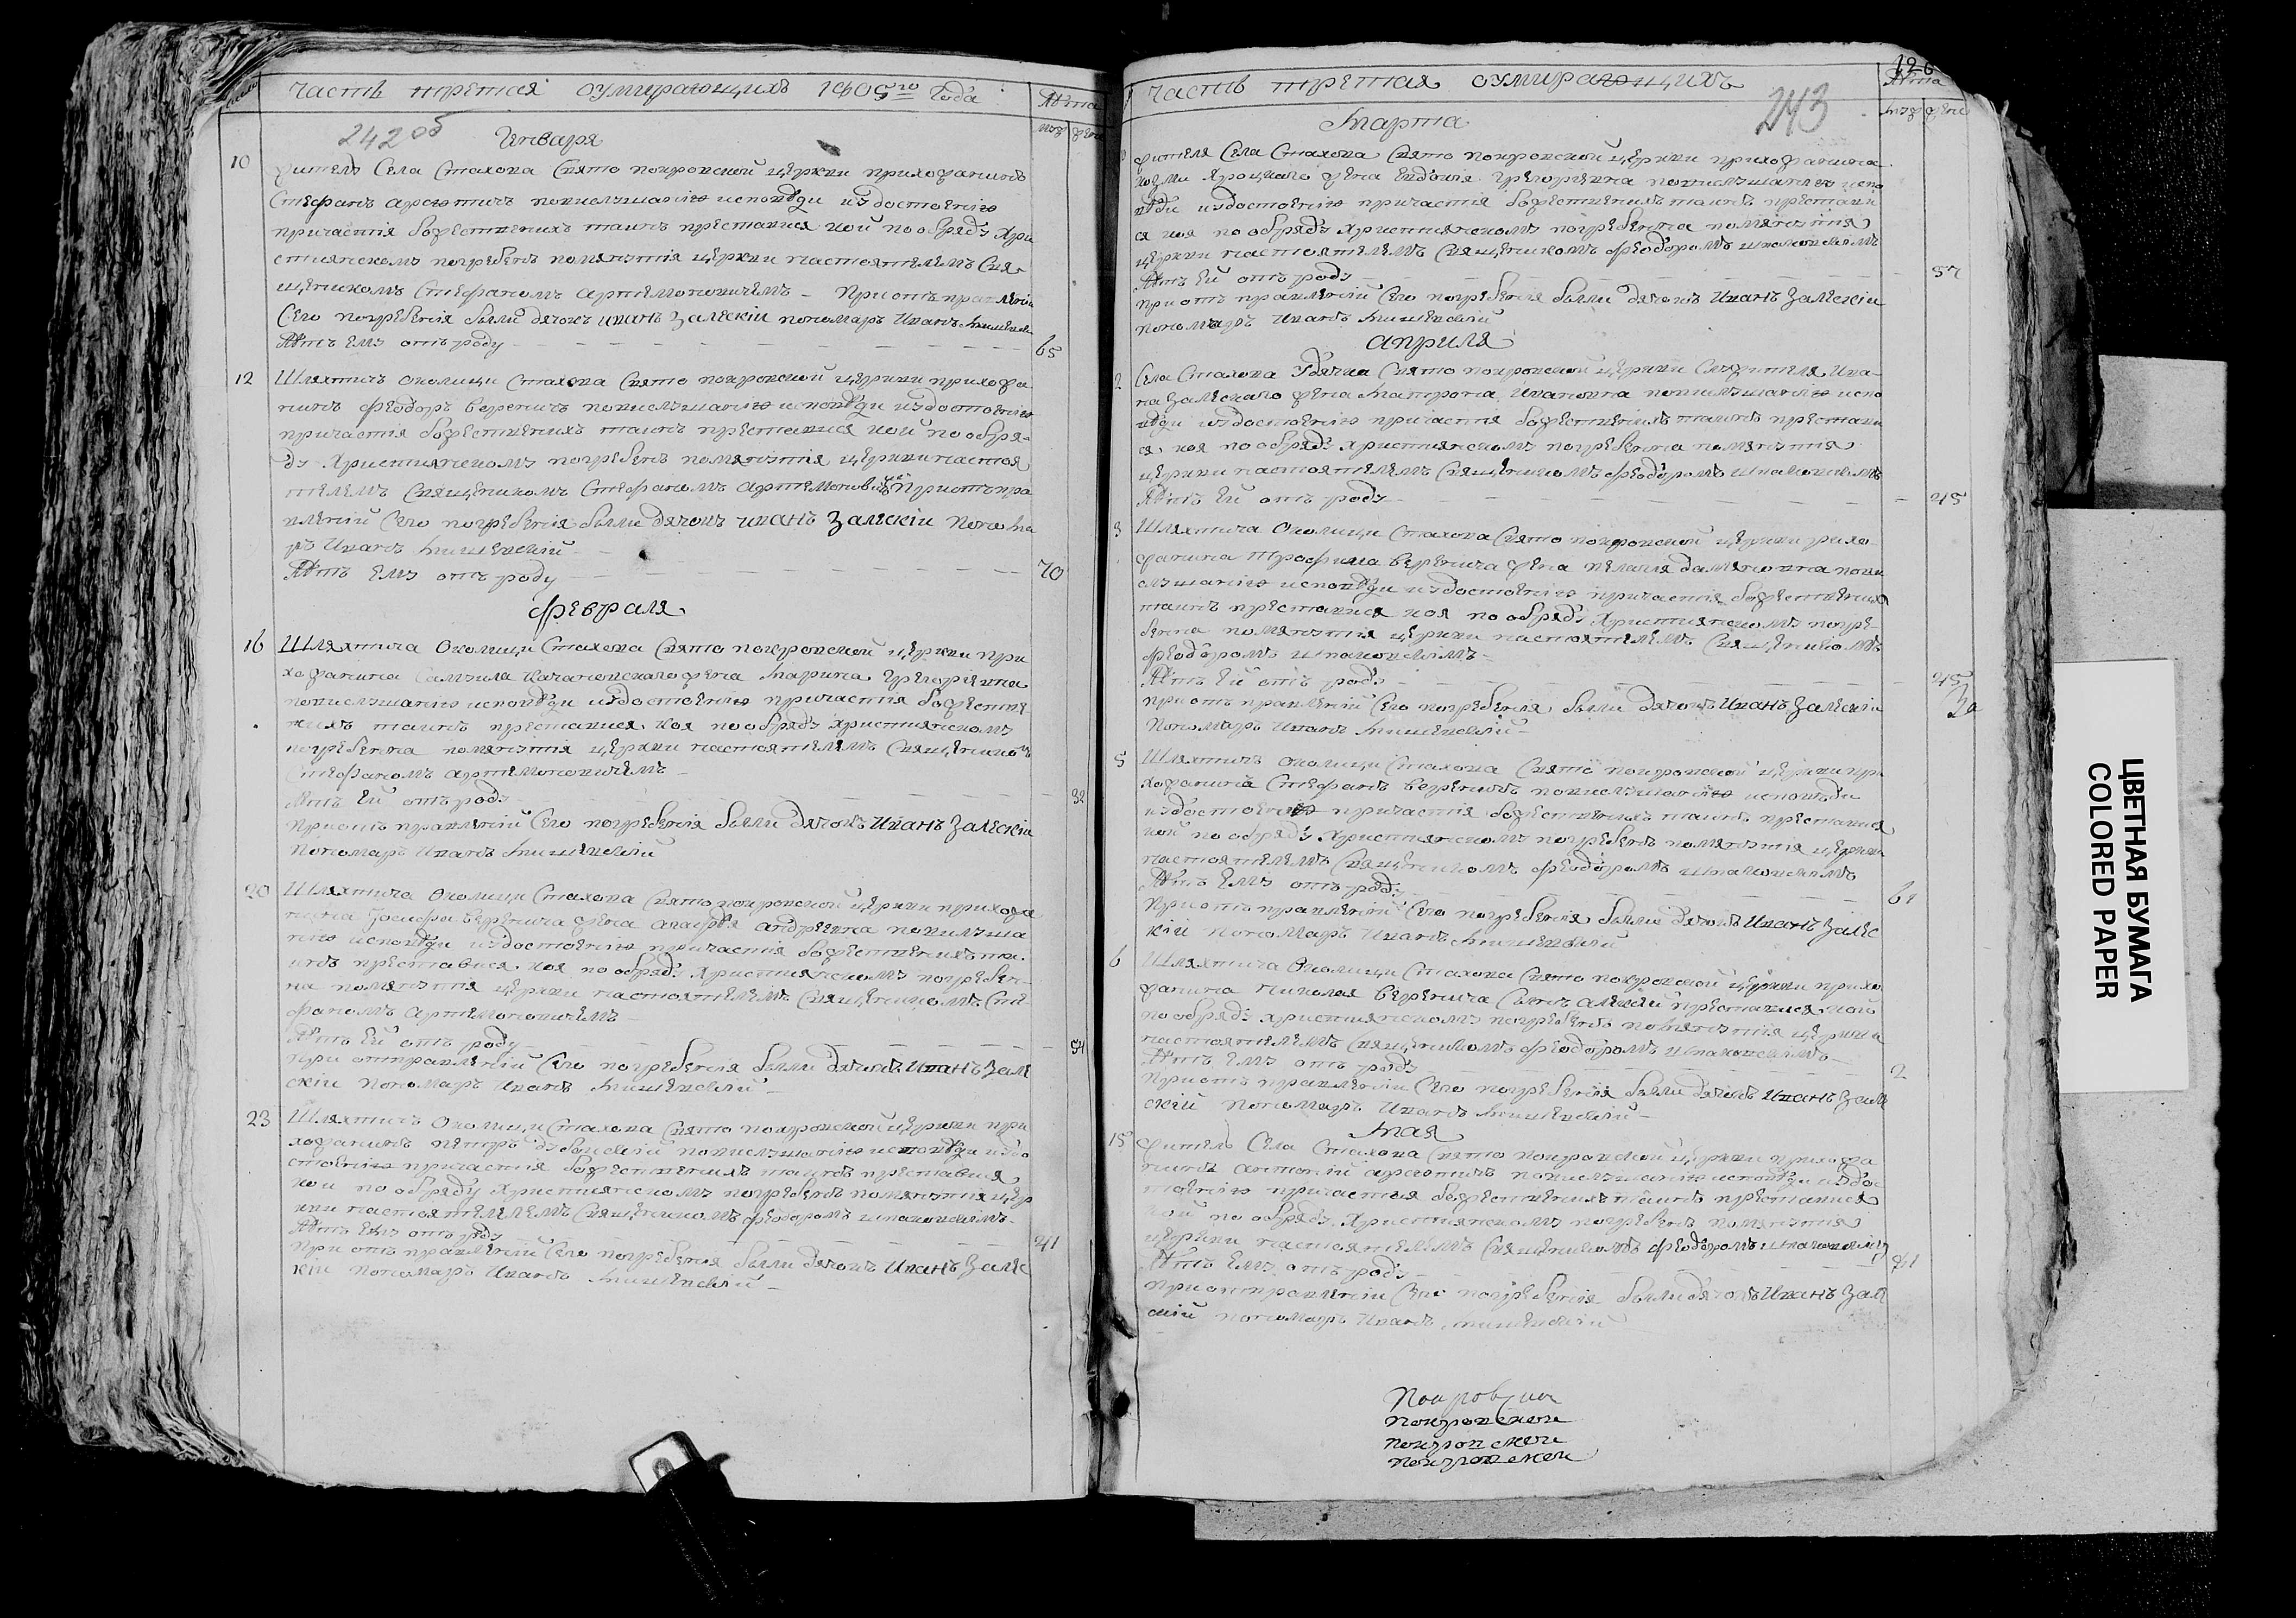 часть третая оумирающихъ 1805го Года
Лѣта
муж жен
242 об
Генваря
10
житель Села Стахова Свято покровской церкви прихожанинъ
Стефанъ по выслушанію исповѣди и удостоенію
причастія божественихъ таинъ преставися кой по обряду Хри
стиянскому погребенъ поменутія церкви настоятелемъ Свя
щеникомъ Стефаномъ Артемоновичемъ – При отправленіи
Сего погребенія были дячокъ Иванъ Залескіи пономаръ Иванъ
Лѣтъ Ему отъ роду
65
12
Шляхтичъ околици Стахова Свято покровской церкви прихожа
нинъ Феодоръ Вереничъ по выслушанію исповѣди и удостоенію
причастія божественихъ таинъ преставися кой по обря-
ду Християнскому погребенъ поменутія церкви настоя
телемъ Священикомъ Стефаномъ Артемонович При отпра
вленій Сего погребенія были дячокъ Иванъ Залескіи Понома
ръ Иванъ
Лѣтъ Ему отъ роду
70
Февраля
16
Шляхтича Околици Стахова Свято покровской церкви при
хожанина Самуила Качановскаго жена Марина Григориевна
по выслушанію исповѣди и удостоенію причастія божестве
нихъ таинъ преставися коя по обряду Християнскому
погребенна поменутія церкви настоятелемъ Священикомъ
Стефаномъ Артемоновичемъ
Лѣтъ Ей отъ роду
32
При отправленій Сего погребенія были дячокъ Иванъ Залескіи
Пономаръ Иванъ
20
Шляхтича Околици Стахова Свято покровской церкви прихожа
нина Иосифа Веренича жена Агафія Андреевна по выслуша
нію исповѣди и удостоенію причастія божественихъ та
инъ преставися коя по обряду Християнскому погребен-
на поменутія церкви настоятелемъ Священикомъ Сте
фаномъ Артемоновичемъ
Лѣтъ Ей отъ роду
54
При отправленій Сего погребенія были дячокъ Иванъ Зале
скіи пономаръ Иванъ
23
Шляхтичъ Околици Стахова Свято покровской церкви при
хожанинъ Петръ по выслушанію исповѣди и удо
стоенію причастія божественихъ таинъ преставися
кой по обряду Християнскому погребенъ поменутія цер
кви настоятелемъ Священикомъ Феодоромъ
Лѣтъ Ему отъ роду
41
При отправленій Сего погребенія были дячокъ Иванъ Залес
кіи пономаръ Иванъ
часть третая оумирающихъ
126
Лѣта
муж жен
243
Марта
жителя Села Стахова Свято покровской церкви прихожанина
Козми жена Евдокія Григориевна по выслушанію испо
вѣди и удостоенію причастія божественихъ таинъ престави
ся коя по обряду Християнскому погребенна поменутія
церкви настоятелемъ Священикомъ Феодоромъ
Лѣтъ Ей отъ роду
57
При отправленій Сего погребенія были дячокъ Иванъ Залескіи
пономаръ Иванъ
Априля
2
Села Стахова Дячка Свято покровской церкви Ива-
на Залескаго жена Матрона Ивановна по выслушанію испо
вѣди и удостоенію причастія божественихъ таинъ престави
ся коя по обряду Християнскому погребенна поменутія
церкви настоятелемъ Священикомъ Феодоромъ
Лѣтъ Ей отъ роду
45
3
Шляхтича Околици Стахова Свято покровской церкви рихо-
жанина Трофима Веренича жена Пелагія по вы
слушанію исповѣди и удостоенію причастія божественихъ
таинъ преставися коя по обряду Християнскому погре-
бенна поменутія церкви настоятелемъ Священикомъ
Феодоромъ
Лѣтъ Ей отъ роду
45
При отправленій Сего погребенія были дячокъ Иванъ Залескіи
Пономаръ Иванъ
5
Шляхтичъ околици Стахова Свято покровской церкви при
хожанина Стефанъ Вереничъ по выслушанію исповѣди
и удостоенію причастія божественихъ таинъ преставися
кой по обряду Християнскому погребенъ поменутія церкви
настоятелемъ Священикомъ Феодоромъ
Лѣтъ Ему отъ роду
61
При отправленій Сего погребенія были дячокъ Иванъ Залес
кіи пономаръ Иванъ
6
Шляхтича Околици Стахова Свято покровской церкви прихо
жанина Николая Веренича Синъ Алексій преставися кой
по обряду Християнскому погребенъ поменутія церкви
настоятелемъ Священикомъ Феодоромъ
Лѣтъ Ему отъ роду
2
При отправленіи Сего погребенія были дячокъ Иванъ Зале
скій пономаръ Иванъ
Мая
15
житель Села Стахова Свято покровской церкви прихожа
нинъ Антоній по выслушанію исповѣди и удос
тоенію причастія божественихъ таинъ преставися
кой по обряду Християнскому погребенъ поменутія
церкви настоятелемъ Священикомъ Феодоромъ
Лѣтъ Ему отъ роду
При отправленіи Сего погребенія были дячокъ Иванъ Зале
скій пономаръ Иванъ
покровской
покровской
покровской
ЦВЕТНАЯ БУМАГА
COLORED PAPER